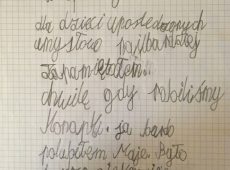 dla dzieci upośledzonych
umysłowo najbardziej
zapamiętałem
chwilę gdy robiliśmy
Kanapki. ja bardo
polubiłem Maję. Było